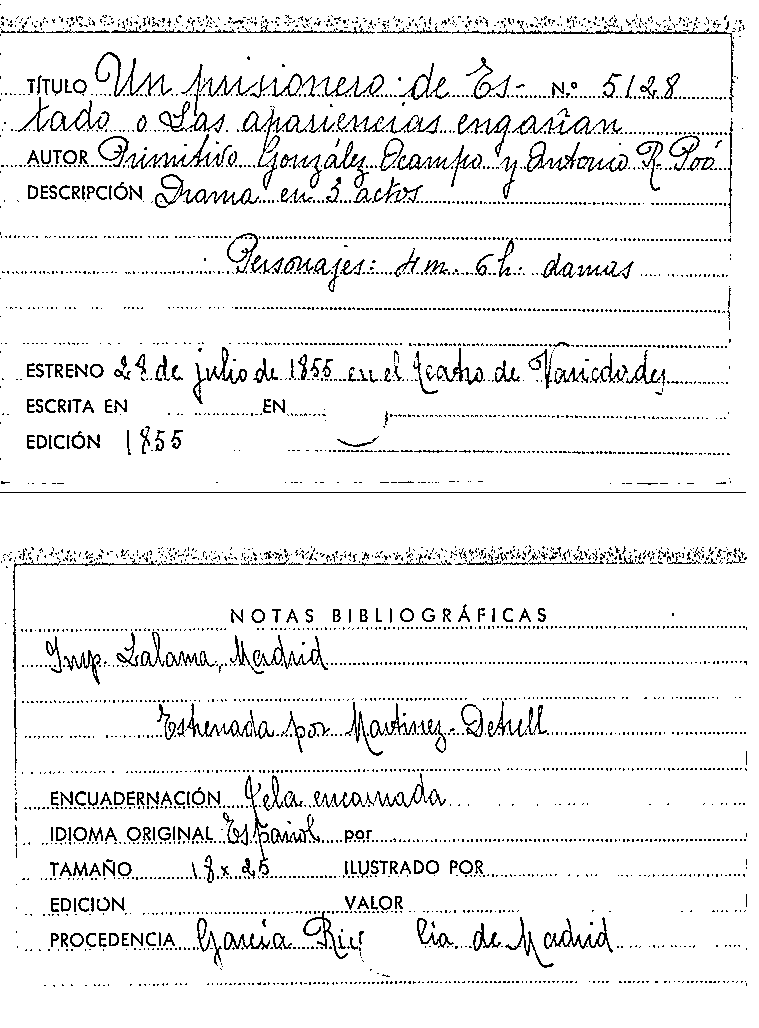 TÍTULO Un prisionero de Es- N.º 5128
tado o Las apariencias engañan
AUTOR Primitivo González Ocampo y Antonio R. Poó
DESCRIPCIÓN Drama en 3 actos
Personajes: 4 m. 6 h. damas
ESTRENO 28 de julio de 1855 en el teatro de Variedades
ESCRITA EN EN
EDICIÓN 1855
NOTAS BIBLIOGRÁFICAS
Imp. Lalama, Madrid
Estrenada por Martinez-Detrell
ENCUADERNACIÓN Tela encarnada
IDIOMA ORIGINAL Español por
TAMAÑO 18 x 25 ILUSTRADO POR
EDICION VALOR
PROCEDENCIA García Rico Cia. de Madrid